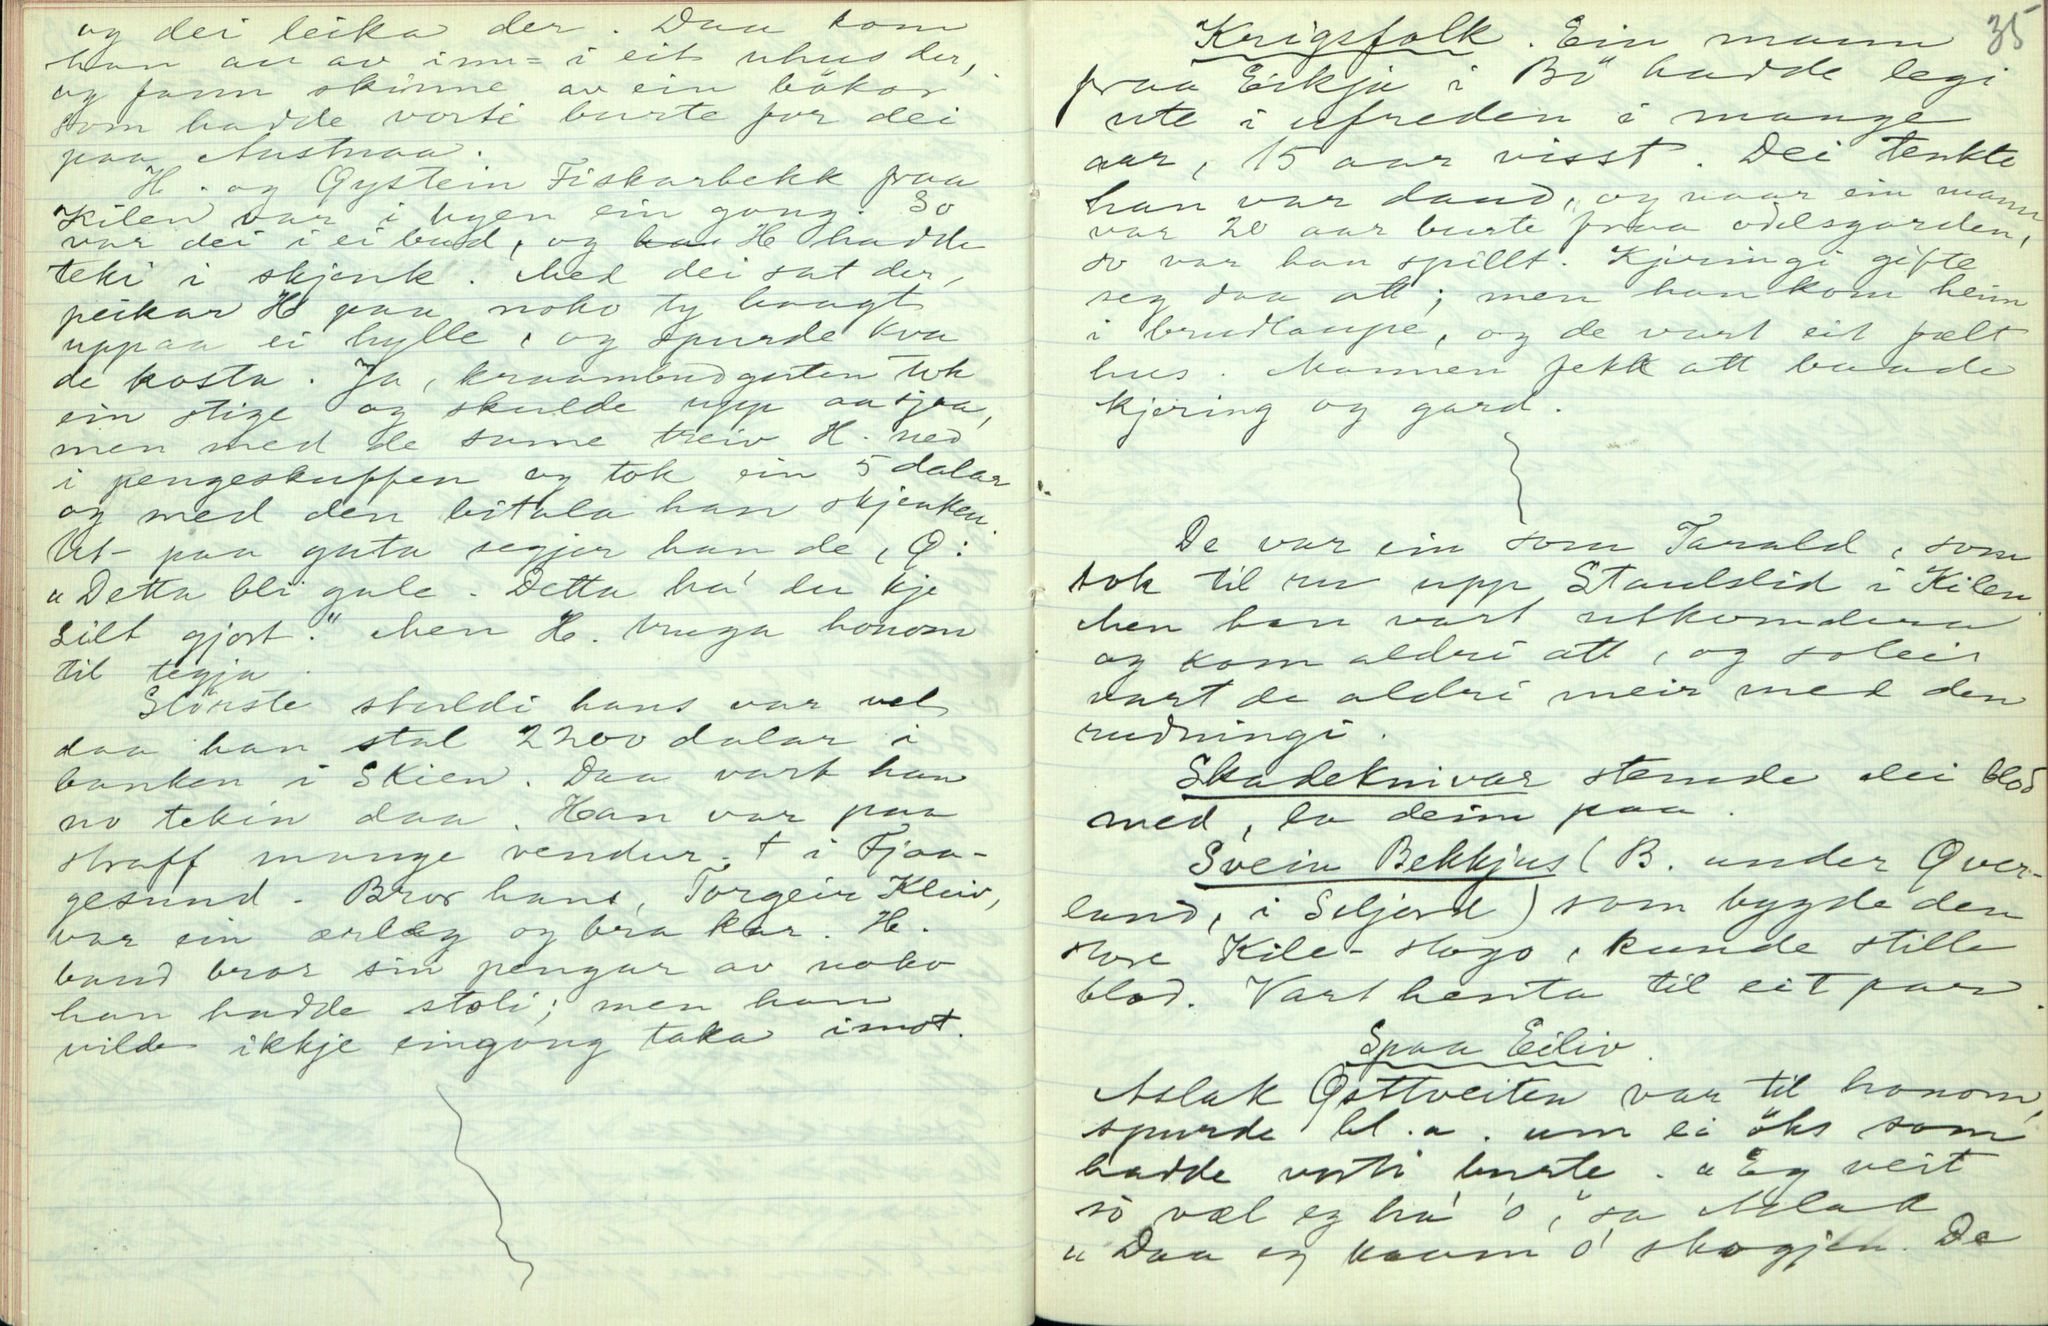 og dei leika der. Daa kom
han au av inn= i eit uhus der,
og fann skinne av ein bökar
som hadde vorti burte for dei
paa Austnaa.
H. og Øystein Fiskarbekk fraa
Kilen var i byen ein gong. So
var dei i ei bud, og H hadde
teki i skjenk. Med dei sat der,
peikar H paa noko ty haagt
uppaa ei hylle, og spurde kva
de kosta. Ja, kraambudguten tok
ein stige og skulde upp aa sjaa,
men med de same treiv H. ned
i pengeskuffen og tok ein 5 dalar
og med den bitala han skjenken.
Ut- paa gata segjer han de, Ø:
"Detta bli gale. Detta ha' du kje
stilt gjort." Men H. truga honom
til tegja.
Störste stuldi hans var vel
daa han stal 2200 dalar i
banken i Skien. Daa vart han
no tekin daa. Han var paa
straff mange vendur. † i Fjaa-
gesund. Bror hans, Torgeir Kleiv,
var ein ærleg og bra kar. H.
baud bror sin pengar av noko
han hadde stoli; men han
vilde ikkje eingong taka imot.
35
Krigsfolk. Ein mann
fraa Eikja i Bö hadde legi
ute i ufreden i mange
aar, 15 aar visst. Dei tenkte
han var daud, og naar ein mann
var 20 aar burte fraa odelsgarden,
so var han spillt. Kjeringi gifte
seg daa att; men han kom heim
i brudlaupe, og de vart eit fælt
hus. Mannen fekk att baade
kjering og gard.
De var ein som Tarald, som
tok til ru upp Staulslid i Kilen.
Men han vart utkomdera
og kom aldri att, og soleis
vart de aldri meir med den
rudningi.
Skadeknivar stemde dei blod
med, la deim paa.
Svein Bekkjus (B. under Øver-
land, i Seljord) som bygde den
store Kile-stogo, kunde stille
blod. Vart henta til eit par.
Spaa Eiliv
Aslak Østtveiten var til honom,
spurde bl.a. um ei öks som
hadde vorti burte. "Eg veit
so væl eg ha' 'o", sa Aslak
"Daa eg kaam ó' skogjen. De